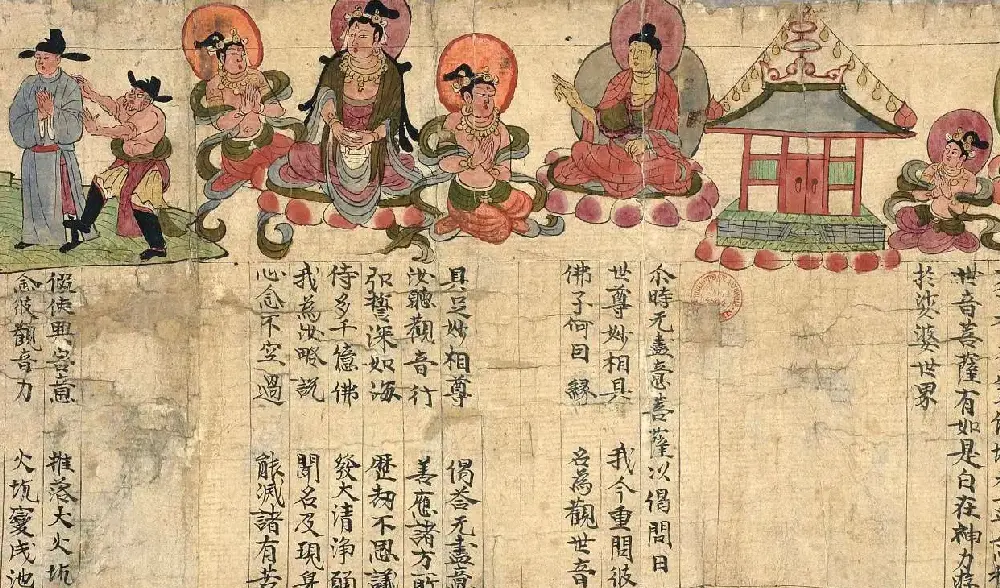 世音菩薩有如是自在神力遊
於娑婆世界
尒時无盡意菩薩以偈問曰
世尊妙相具 我今重問彼
佛子何因緣 名為觀世音
具足妙相尊 偈荅无盡意
汝聽觀音行 善應諸方所
弘誓深如海 歷劫不思議
侍多千億佛 發大清淨願
我為汝略說 聞名及現身
心念不空過 能滅諸有苦
假使興害意 推落大火坑
念彼觀音力 火坑變成池